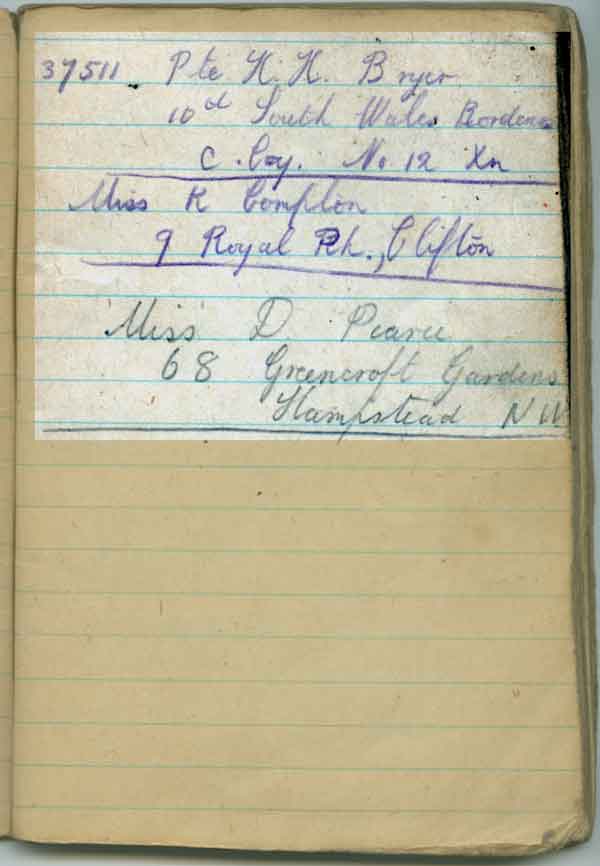 37511 Pte H. H. Bryer
10d South Wales Borderers
C. Coy. No 12 Xn
Miss K Compton
9 Royal Ph., Clifton
Miss D Pearce
68 Greencroft Gardens
Hampstead NW